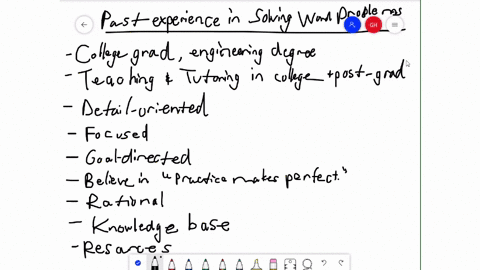 Past experience in Solving Word Problems
- College grad, engineering degree
- Teaching & Tutoring in college + post-grad
- Detail-oriented
- Focused
- Goal-directed
- Believe in "Practice makes perfect."
- Rational
- Knowledge base
- Resources
GH